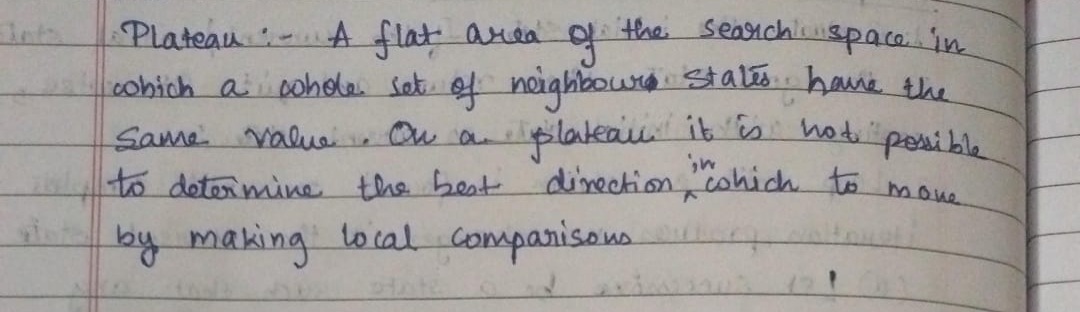 Plateau :- A flat area of the search space in
which a whole set of neighbours states have the
same value. On a plateau it is not possible
to determine the best direction in which to move
by making local comparisons